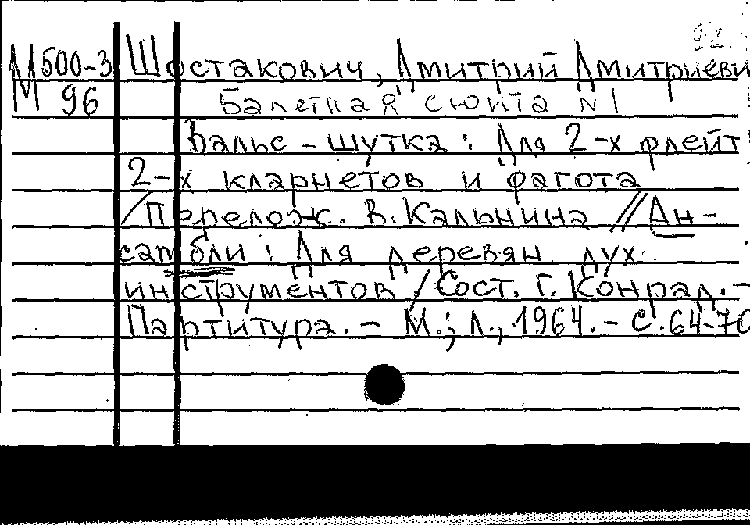 М500-3 Шостакович, Дмитрий Дмитриеви
М 96 Балетная сюита N1
Вальс - шутка : Для 2-х флейт
2-х кларнетов и фагота
/Перелож. В. Кальнина // Ан-
самбли : Для деревян дух.
инструментов / Сост. Г. Конрад. -
Партитура. - М.; Л., 1964. - С. 64-70